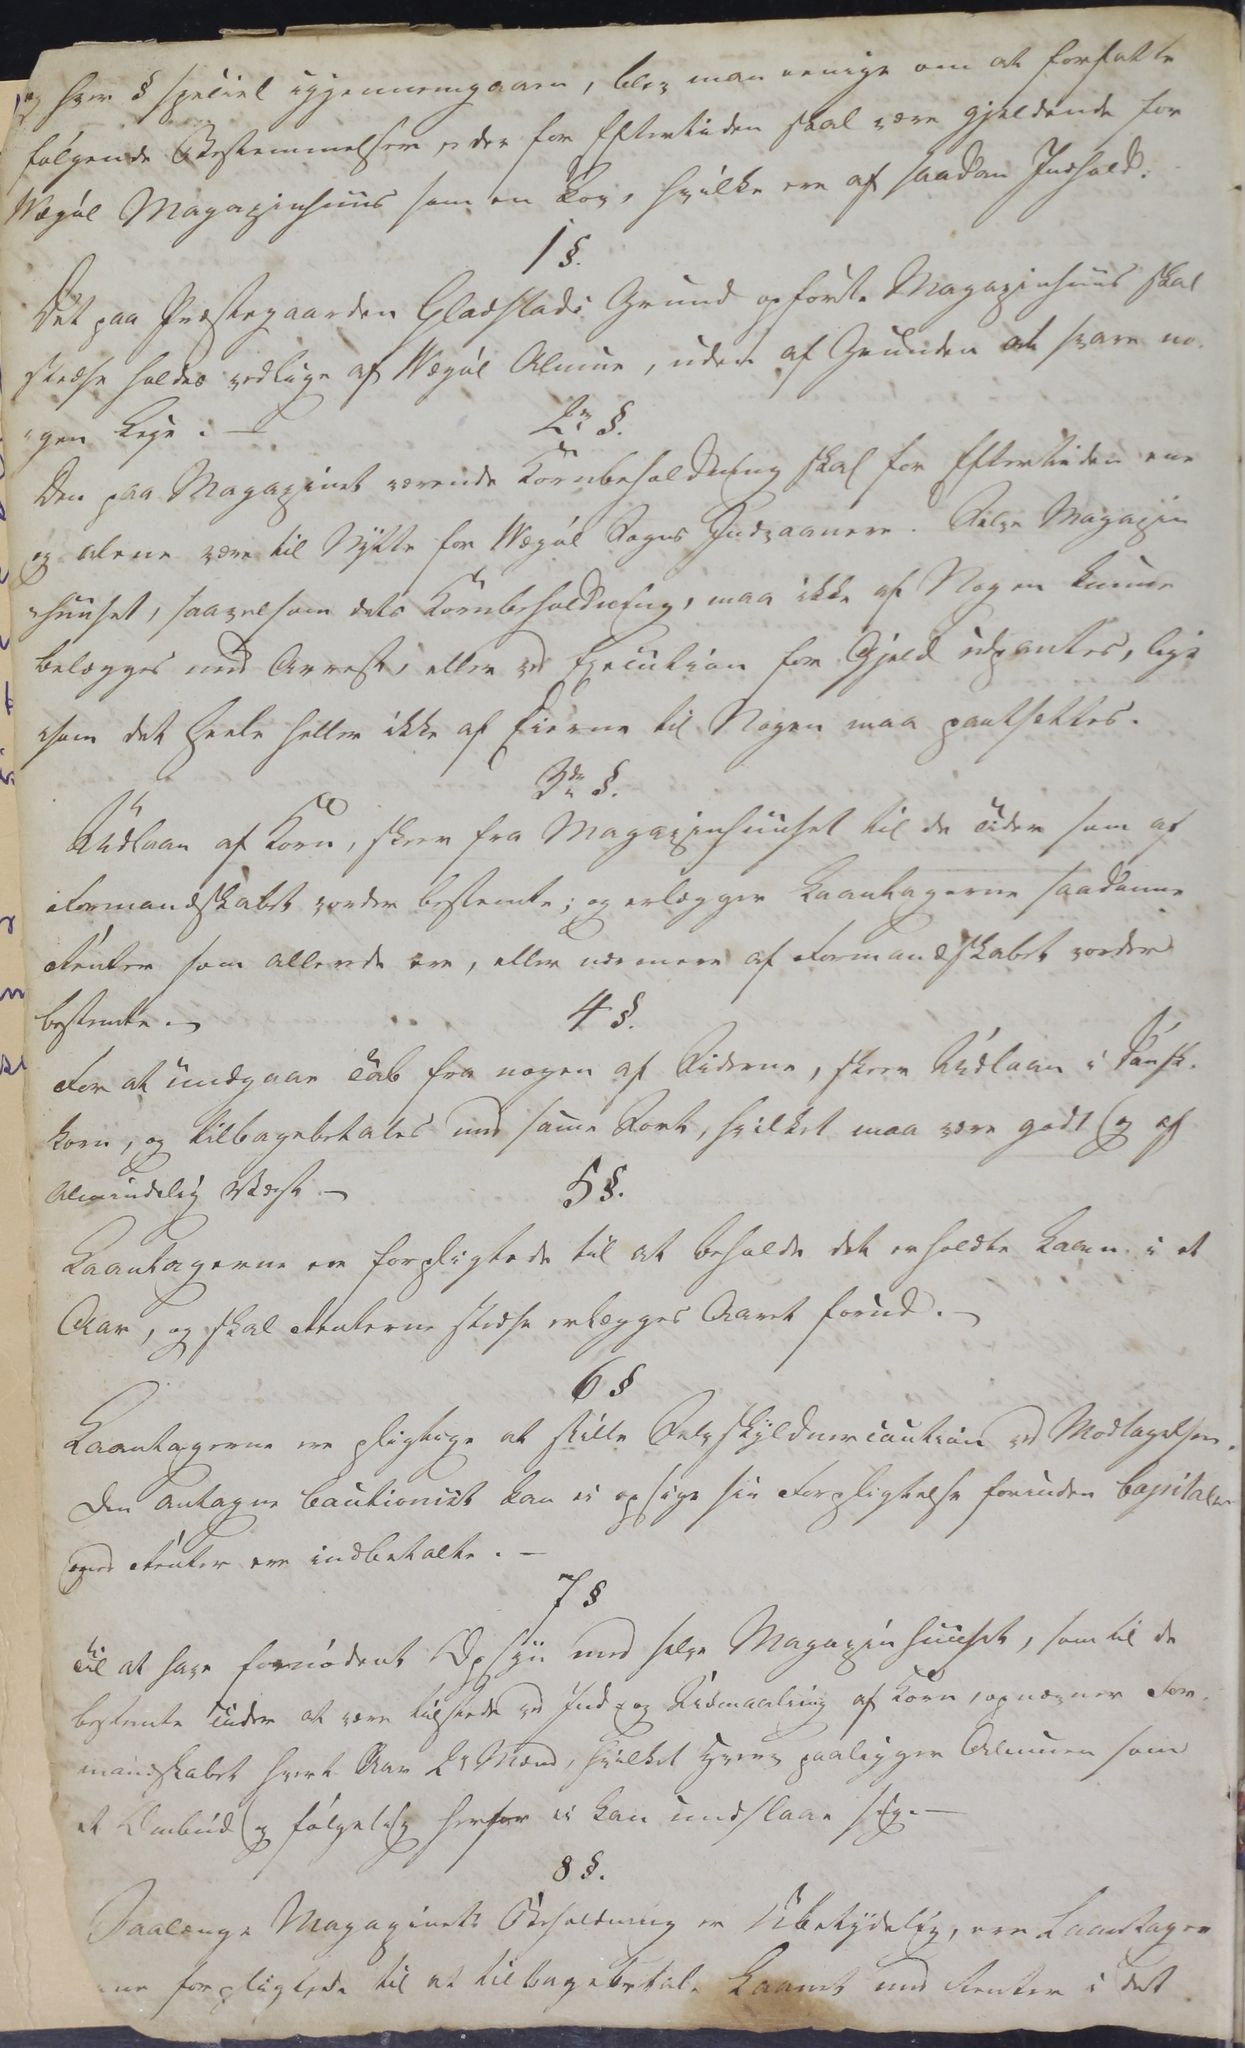 og hver § speciel igjennemgaaen, blev man eenige om at forfatte
følgende Bestemmelser, der for Eftertiden skal være gjeldende for
Wegøl Magazinhuus som en Lov, hvilke ere af saadan Indhold:
1 §.
Det paa Præstegaarden Gladstads Grund opførte Magazinhuus skal
stedse holdes vedlige af Wegøl Almue, uden af Grunden at svare no-
"gen Leje. —
2n §.
Den paa Magazinet værende Kornbeholdning skal for Eftertiden ene
og alene være til Nÿtte for Wegøl Sogns Indvaanere. Selve Magazin
"huuset, saavelsom dets Kornbeholdning, maa ikke af Nogen kunne
belægges med Arrest, eller ved Execution for Gjeld udpantes, lige
"som det heele heller ikke af Eierne til Nogen maa pantsettes.
3die §.
Udlaan af Korn, skeer fra Magazinhuuset til de Tider som af
Formandskabet vorder bestemte; og erlægger Laantagerne saadanne
Renter som allerede ere, eller nærmere af Formandskabet vorder
bestemte. —
4 §.
For at undgaae Tab fra nogen af Siderne, skeer Udlaan i Dansk-
korn, og tilbagebetales med samme Sort, hvilket maa være godt og af
almindelig Vægt —
5 §.
Laantagerne ere forpligtede til at beholde det erholdte Laan i et
Aar, og skal Renterne stedse erlægges Aaret forud. —
6 §
Laantagerne ere pligtige at stille Selvskÿldnercaution ved Modtagelsen.
Den antagne Cautionist kan ei opsige sin Forpligtelse forinden Capitalen
med Renter ere indbetalte. —
7 §
Til at have fornødent Opsÿn med selve Magazinhuuset, som til de
bestemte Tider at være tilstede ved Ind- og Udmaaling af Korn, opnævner For-
mandskabet hvert Aar 2 Mænd, hvilket Hverv paaligger Almuen som
et Ombud og følgelig herfor ei kan undslaae sig. —
8 §.
Saalænge Magazinets Beholdning er Ubetÿdelig, ere Laantager
ne forpligtede til at tilbagebetale Laanet med Renter i det